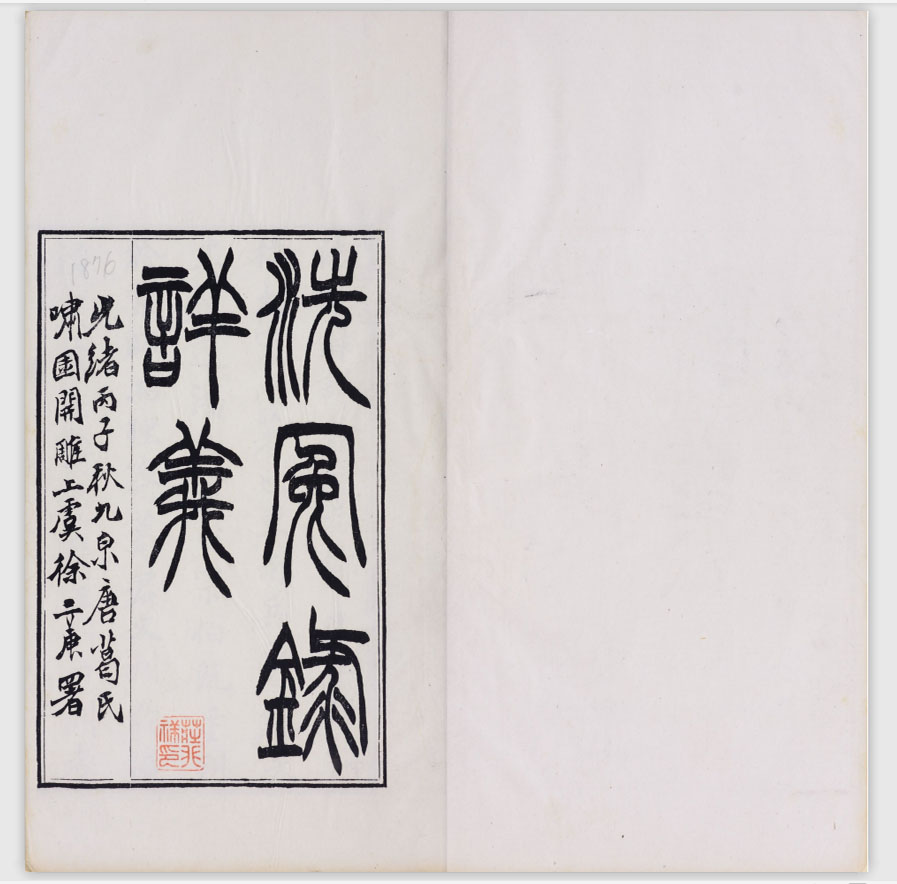 洗冤錄
詳義
光緒丙子秋九泉唐葛氏
嘯園開雕上虞徐三庚署
1876
莊兆
祥印